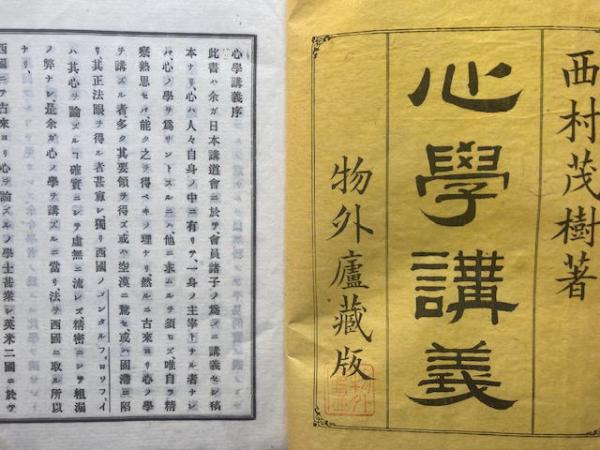 西村茂樹著
心學講義
物外廬藏版
心學講義序
此書ハ余ガ日本講道會ニ於テ會員諸子ノ爲メニ講義セシ稿
本ナリ、心ハ人々自身ノ中ニ有リテ、一身ノ主宰トナル者ナレ
バ、心ノ學ヲ爲サントスルニハ、他ニ求ムルヲ須ヒズ、唯自ラ精
察熟思セバ、能ク之ヲ得ベキノ理ナリ、然ルニ古來ヨリ心ノ學
ヲ講ズル者多ク其要領ヲ得ズ、或ハ空漠ニ騖セ、或ハ固滯ニ陷
リ、其正法眼ヲ得ル者甚罕シ、獨リ西國ノメンタルフィロソフイ
ハ、其心ヲ論ズルヿ確實ニシテ虛無ニ流レズ、精密ニシテ粗漏
ノ弊ナシ、是余ガ心ノ學ヲ講ズルニ當リ、法ヲ西國ニ取ル所以
ナリ、
西國ニテ古來ヨリ心ヲ論ズルノ學士甚衆シ、英米二國ニ於テ